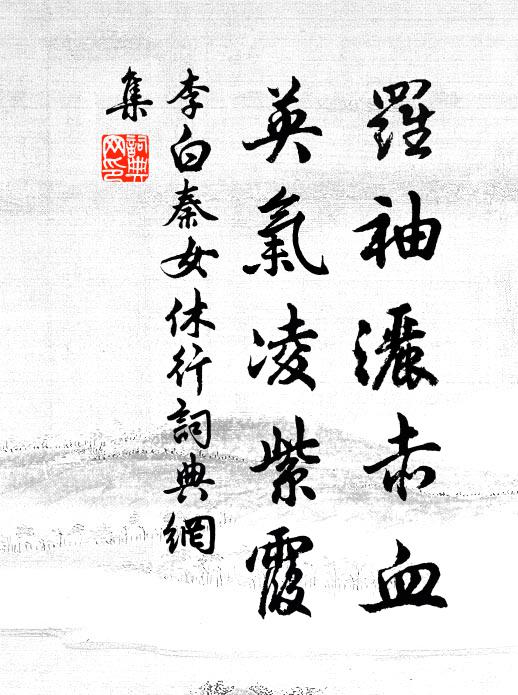 羅袖灑赤血
英氣凌紫霞
李白秦女休行詞典網
集
詞典
网印